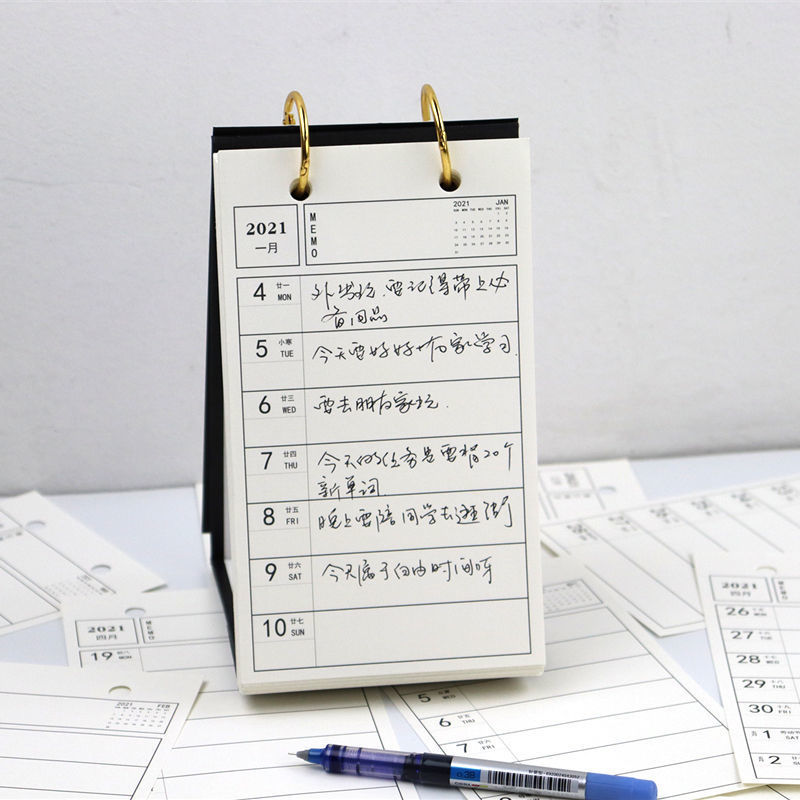 2021
一月
M
E
M
O
2021 JAN
SUN MON TUE WED THU FRI SAT
4 廿一 MON
外出玩,要记得带上必
备用品
5 小寒 TUE
今天要好好在家学习.
6 廿三 WED
要去朋友家玩.
7 廿四 THU
今天的任务是要背20个
新单词.
8 廿五 FRI
晚上要陪同学去逛街
9 廿六 SAT
今天属于自由时间呀
10 廿七 SUN
2021
四月
19 十八 MON
2021 FEB
5 廿四 WED
6 廿五
7 廿六
2021
四月
26 十五 MON
27 十六 TUE
28 十七 WED
29 十八 THU
30 十九 FRI
1 劳动节 SAT
2 SUN
0.38